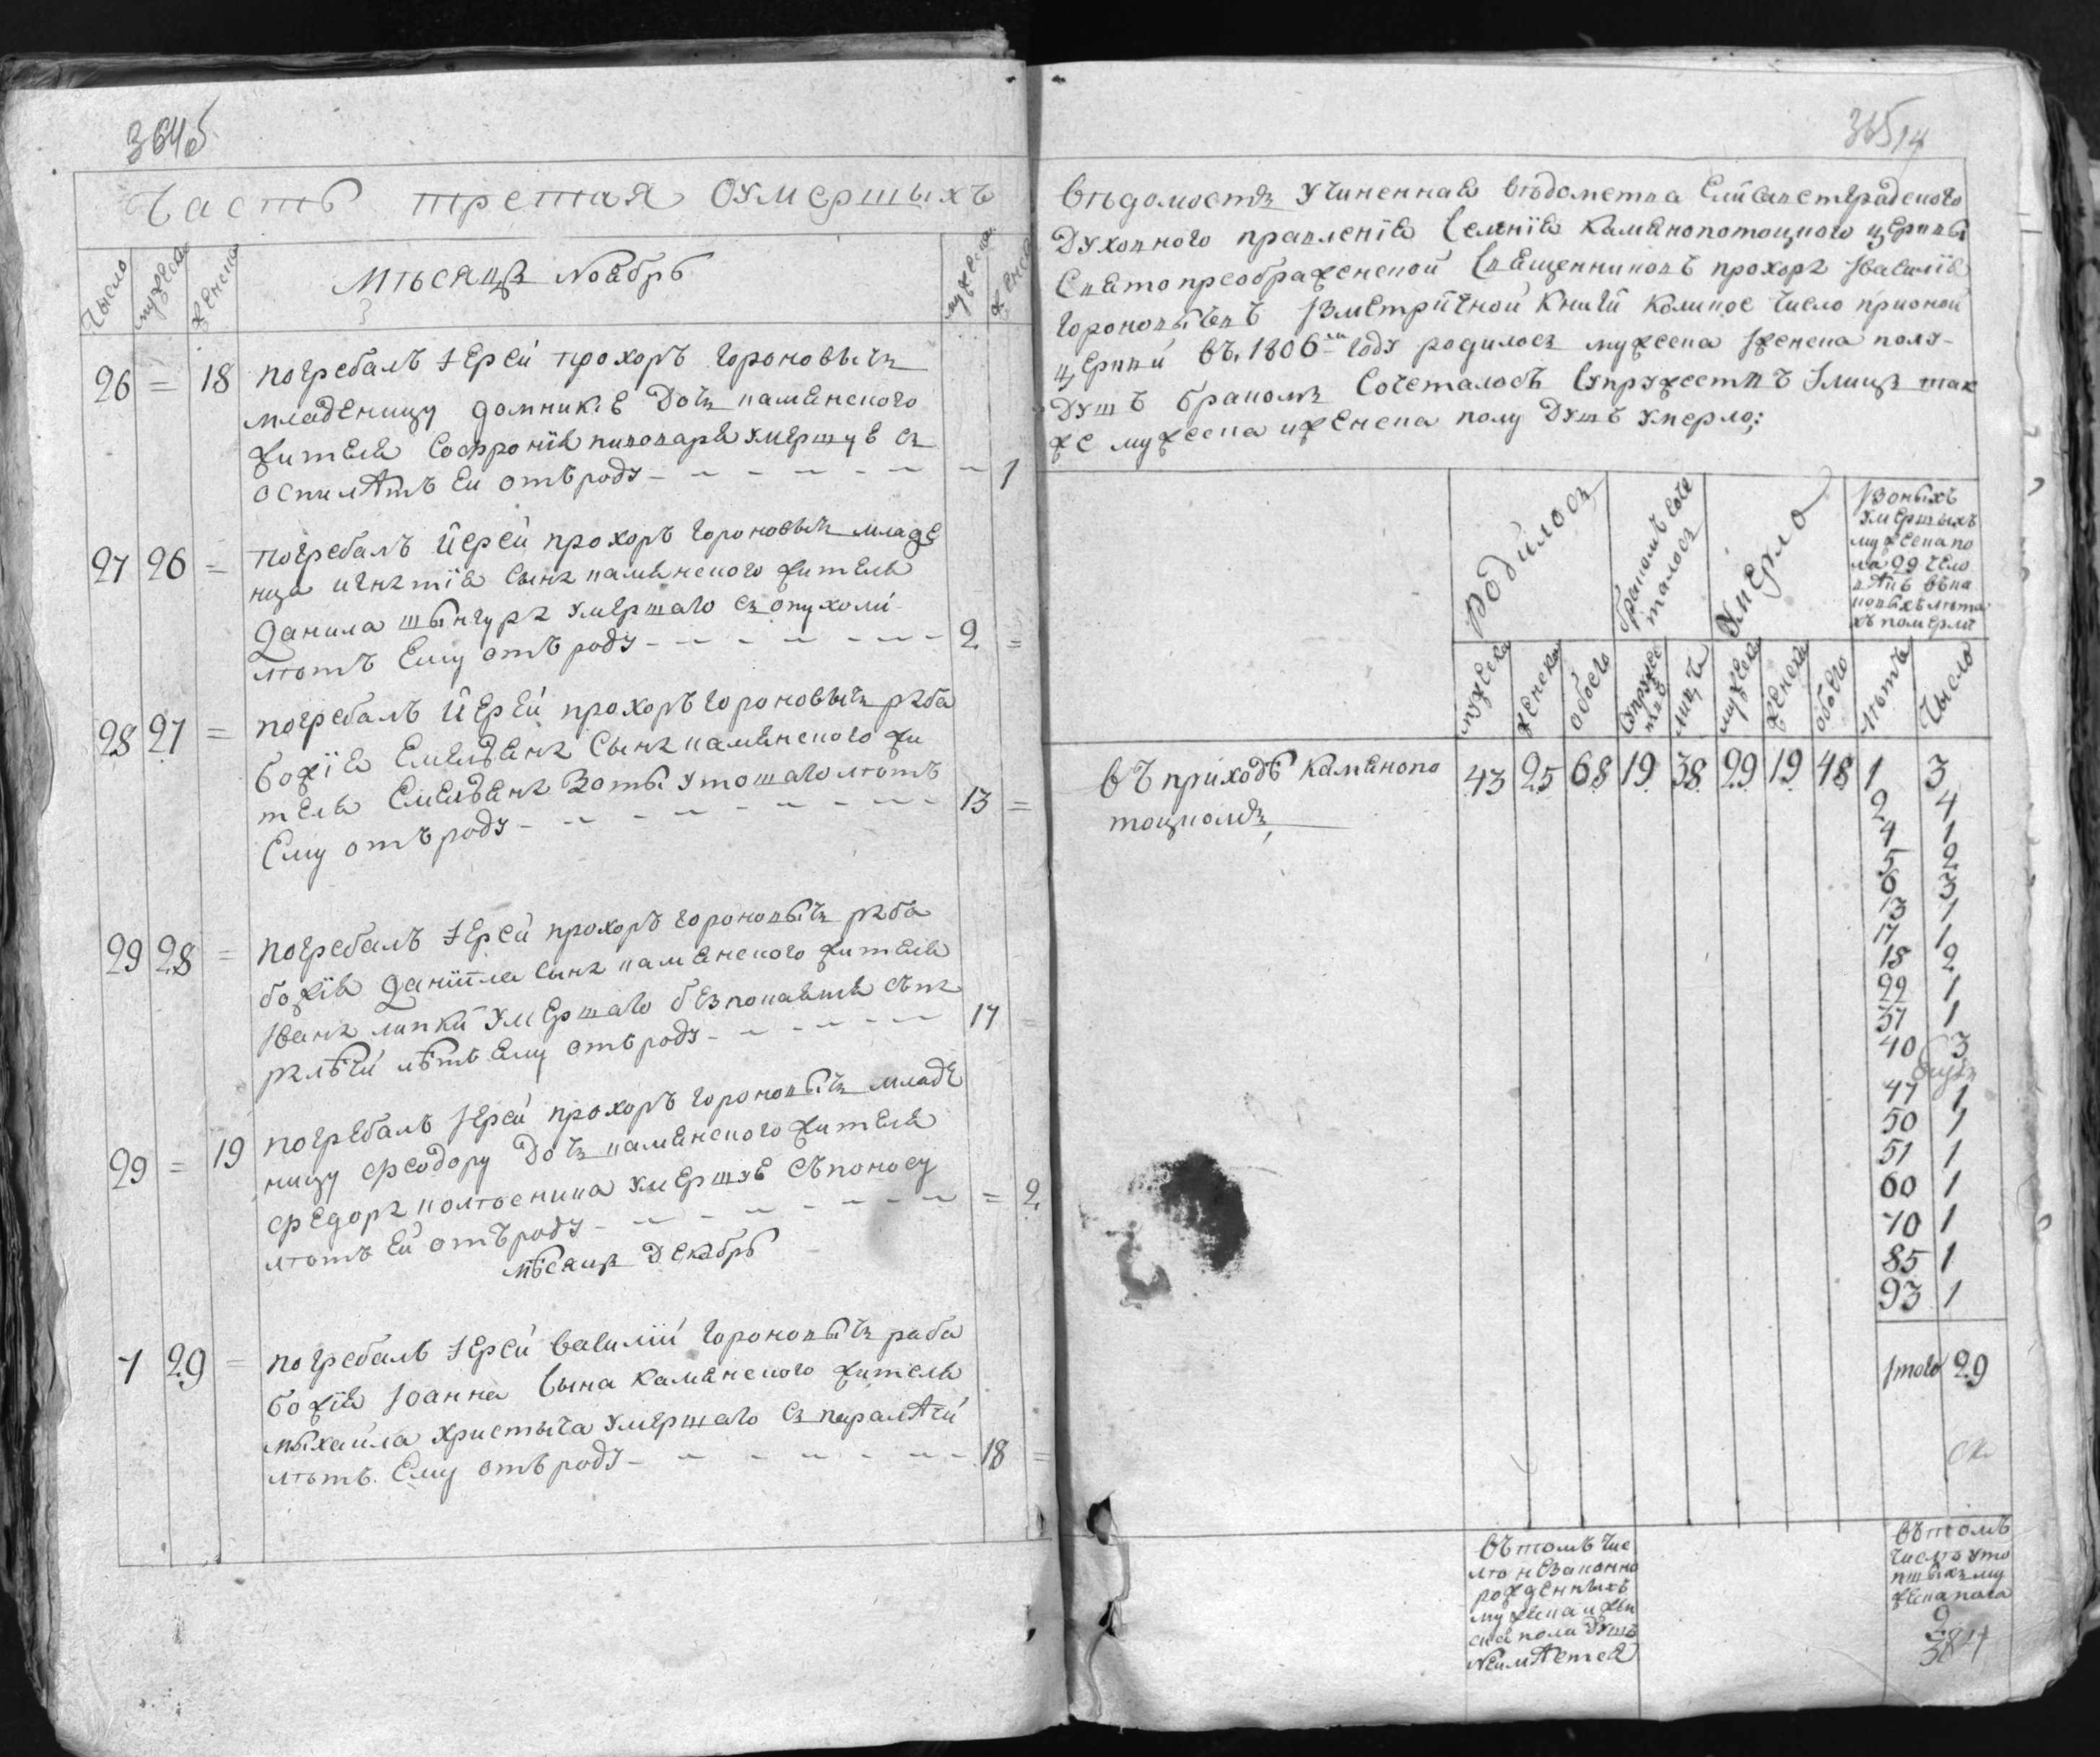 364б
Часть третая Оумершыхъ
Чысло мужеска женска Мѣсяцъ Ноябрь мужеска женска
26 = 18 погребалъ іерей прохоръ Гороновычъ
младеницу домникіе Дочъ каменского
жителя Софронія пивоваря умершуе съ
оспи лѣтъ Еи отъ роду - - - - - 1
27 26 = погребалъ іерей прохоръ Гороновычъ младе
нца игнатія Сына каменского жителя
данила шынгура умершаго съ опухоли
лѣтъ Ему отъ роду - - - - - 2 =
28 27 = погребалъ іерей прохоръ Гороновычъ раба
божія Емелъяна Сына каменского жи
теля Емелъяна Зоты утопшаго лѣтъ
Ему отъ роду - - - - - 13 =
29 28 = погребалъ іерей прохоръ Гороновычъ раба
божія Даніила Сына каменского жителя
Ивана липки умершаго без покаянія
лѣтъ Ему отъ роду - - - - - 17 =
29 = 19 погребалъ іерей прохоръ Гороновычъ младе
ницу феодору Дочъ каменского жителя
федора умершуе съ поносу
лѣтъ Ей отъ роду - - - - - = 2
мѣсяцъ Декабрь
1 29 = погребалъ іерей Василій Гороновычъ раба
божія Іоанна Сына каменского жителя
мыхаила Христыча умершаго съ
лѣтъ Ему отъ роду - - - - - 18 =
365 14
Вѣдомостъ учиненная вѣдомства Елисаветградского
Духовного правленія Селенія Каменопотоцкого церкви
Святопреображенской Священниковъ прохора Ивасилія
Гороновычевъ Изметричной книги коликое числоприоной
церкви въ 1806м Году родилосъ мужеска Іженска полу
Душъ бракомъ Сочеталосъ Супружествъ Ілицъ так
же мужеска иженска полу Душъ умерло:
родилосъ бракомъ Соче
талосъ умерло Изоныхъ
умершыхъ
мужеска по
ла 29 чело
вѣкъ въка
ковыхъ лѣта
хъ померли
мужеска женска обоего Супруже
ствъ лицъ мужеска женска обоего лѣтъ Чысло
Въ приходѣ Каменопо 43 25 68 19 38 29 19 48 1 3
тоцкомъ 2 4
4 1
5 2
6 3
13 1
17 1
18 2
22 1
37 1
40 3
47 1
50 1
51 1
60 1
70 1
85 1
93 1
Ітого 29
Въ томъ чис
лѣ незаконно
рожденныхъ
мужеска и жен
ска пола душъ
Неимѣется
Вътомъ
числѣ уто
пшыхъ му
жеска пола
2